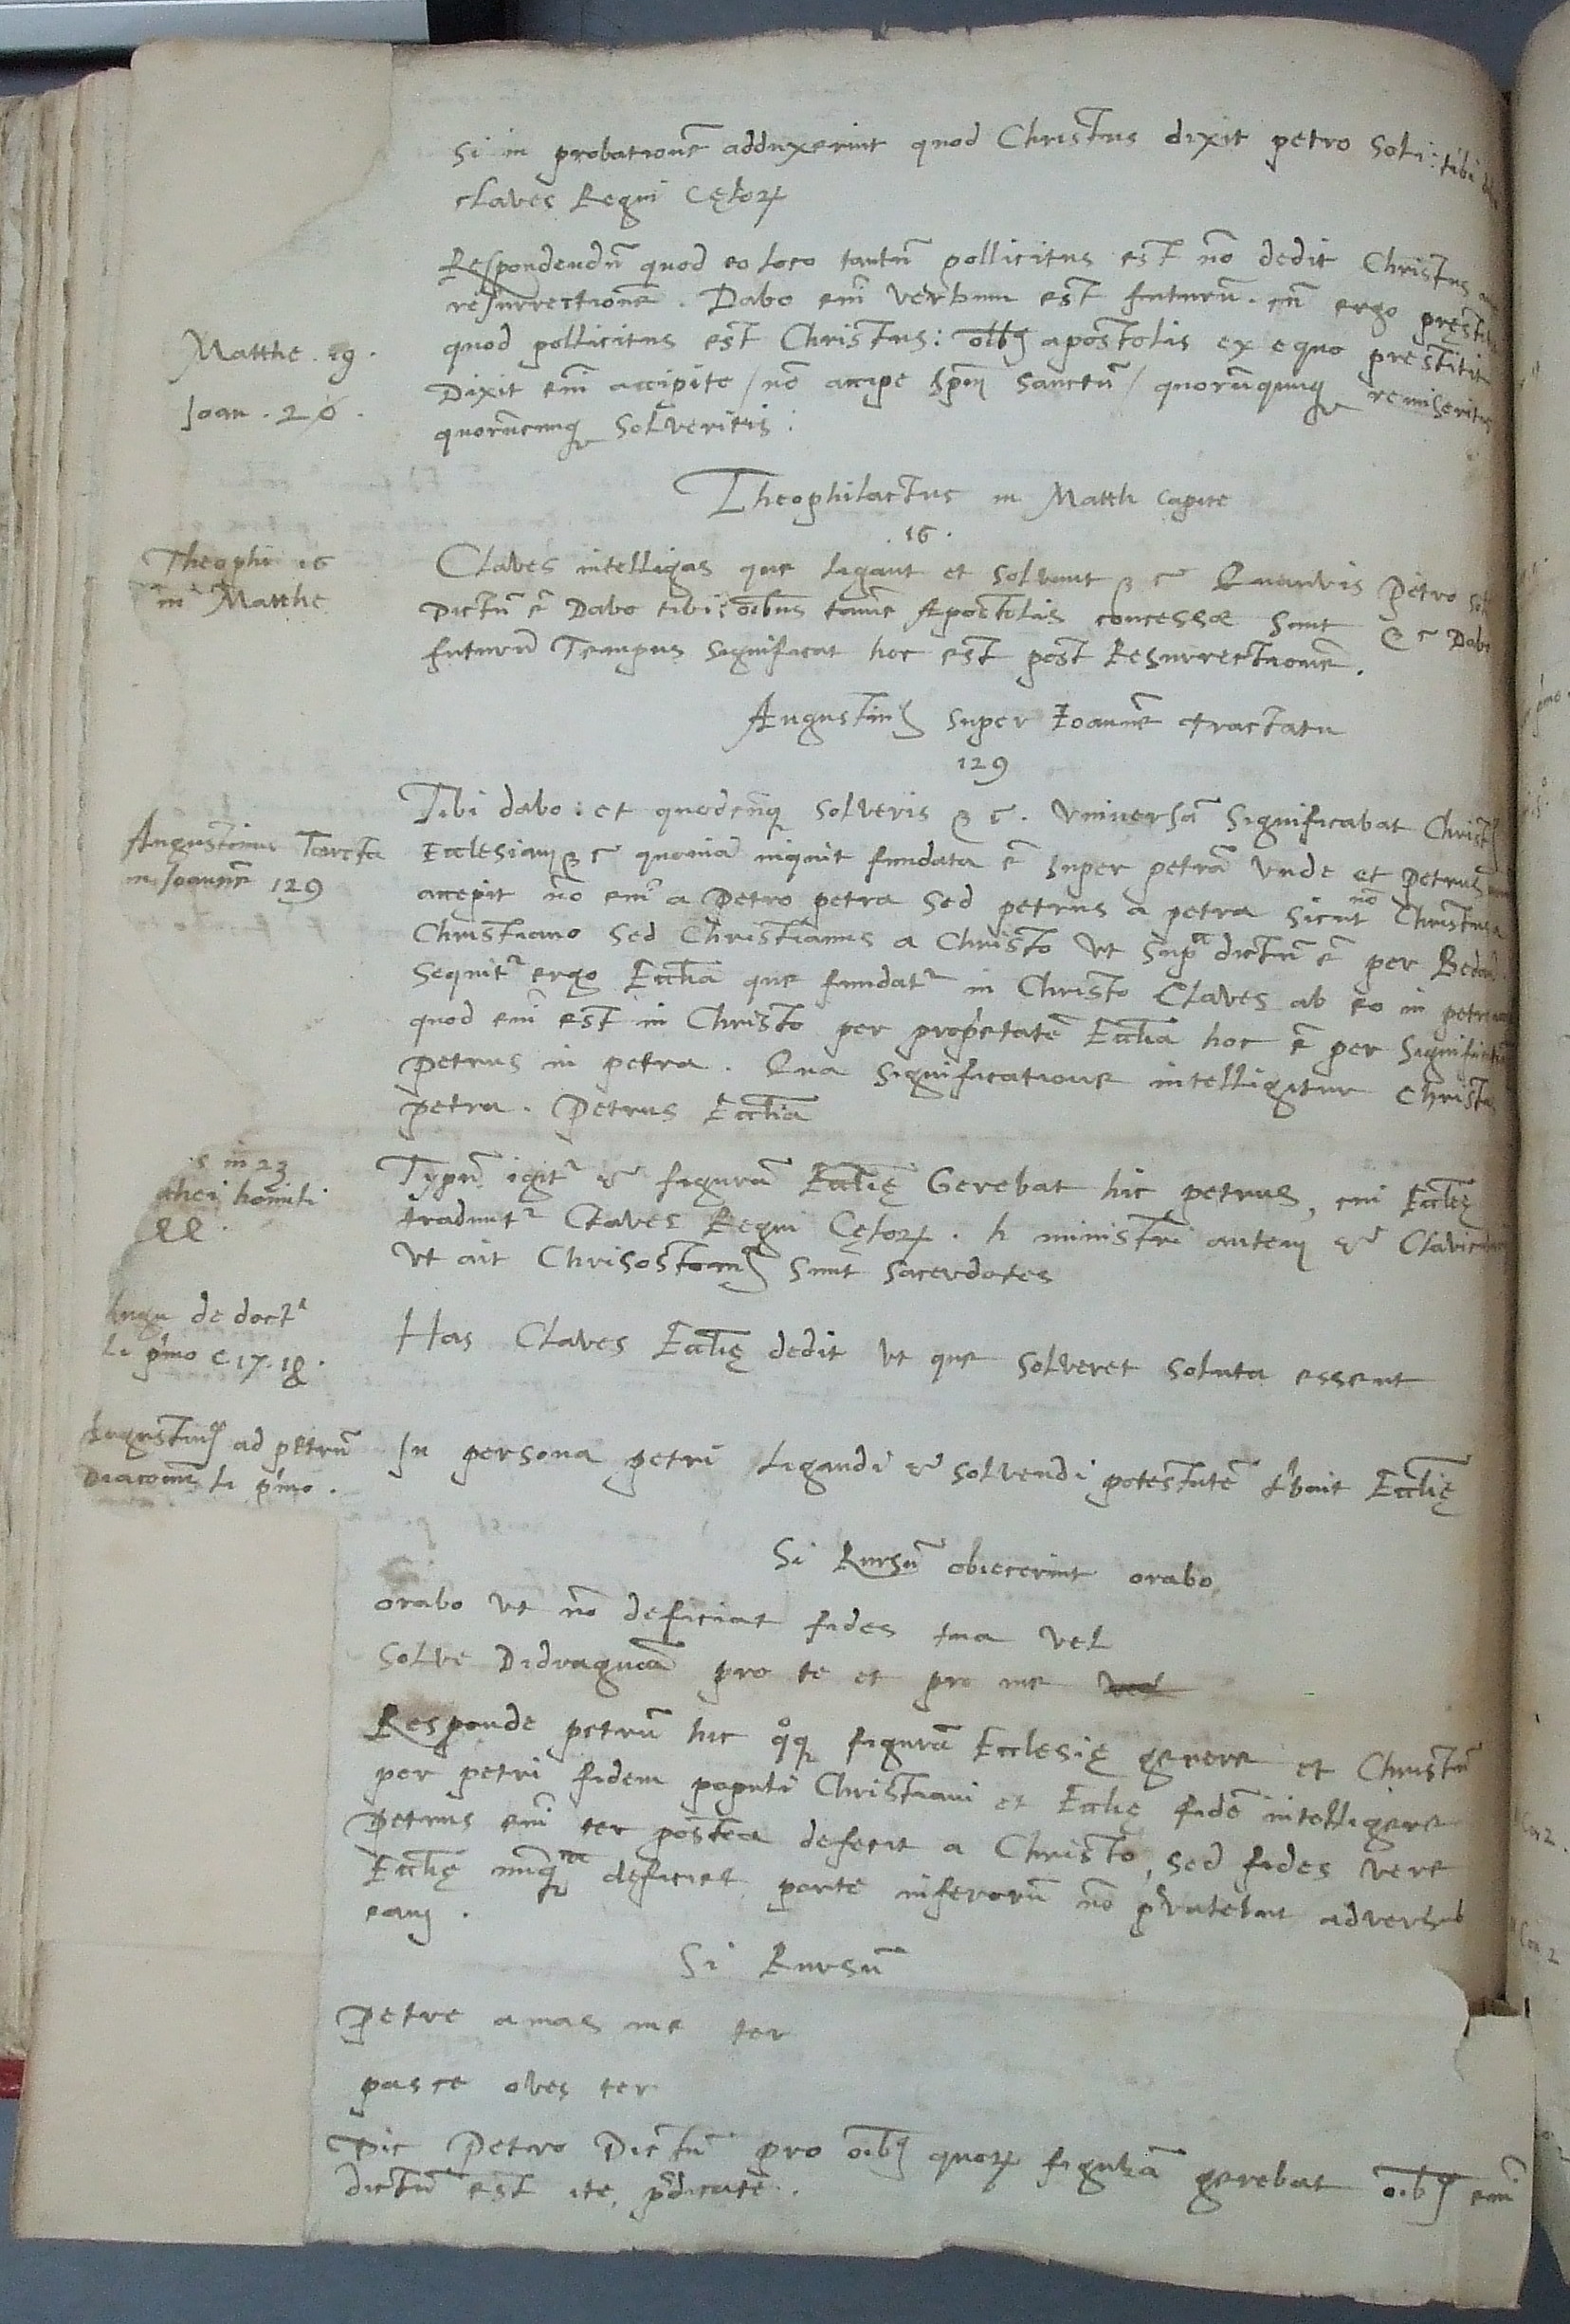 Si in probationē adduxerint quod Christus dixit petro soli: tibi
claves Regni Cęlorꝝ
Respondendū quod eo loco tantū pollicitus est nō dedit Christus
resurrectionē. Dabo eni͂ verbum est futurū. cū ergo pręstit
Matthe. 19.
quod pollicitus est Christus: oībꝰ apostolis ex equo prestitit
Joan. 20.
Dixit eni͂ accipite / nō accipe spm̄ sanctū / quorūqunqꝫ remiseritis
quorūcunqꝫ solveritis:
Theophilactus in Matth capite
.16.
Theophi 16
in Matthe
Claves intelligas que ligant et solvunt &c Quamvis Petro
Dictū ē Dabo tibi: oībus tamē Apostolis concessæ sunt &c Dabo
futurū Tempus significat hoc est post Resurrectionē.
Augustinꝰ super Ioannē tractatu
129
Augustinus Tracta
in Joannē 129
Tibi dabo: et quodcūqꝫ solveris &c. vniversā significabat Christꝰ
Ecclesiam &c quoniā inquit fundata ē super petrā vnde et Petrus
accepit nō eni͂ a Petro petra sed petrus a petra sicut nō Christus a
Christiano sed Christianus a Christo vt supᵃ dictū ē per Bedā.
Sequitᵘʳ ergo Ecclīa que fundatᵘʳ in Christo Claves ab eo in petro
quod eni͂ est in Christo per propͥetatē Ecclīa hoc ē per
petrus in petra. Qua significatione intelligitur Christus
petra. Petrus Ecclīa
s in 23
thei homili
Typū igitᵘʳ & figurā Ecclīę Gerebat hic petrus, cui Ecclīę
traduntᵘʳ Claves Regni Cęlorꝝ. h ministri autem &
vt ait Chrisostomꝰ sunt sacerdotes
Augu de doctᵃ
li pͥmo c 17. 18.
Has Claves Ecclīę dedit vt que solveret soluta essent
Augustinꝰ ad petrū
Diaconū li pͥmo.
In persona petri ligandi & solvendi potestatē tͥbuit Ecclīę
Si Rursū obiecerint orabo
orabo vt nō deficiat fides tua vel
Solve Didragmā pro te et pro me
Responde petrū hic qͦqꝫ figurā Ecclesię gerere et Christū
per petri fidem populi Christiani et Ecclię fidē intelligere
Petrus eni͂ ter postea defecit a Christo, sed fides vere
Ecclīę nūqᵃ deficiet porte inferorū nō pͬvalebūt adversꝰ
eam.
Si Rursū
Petre amas me ter
pasce oves ter
Dic Petro Dictū pro oībꝰ quorꝝ figurā gerebat oībꝰ eni͂
dictū est ite, pͬdicate.